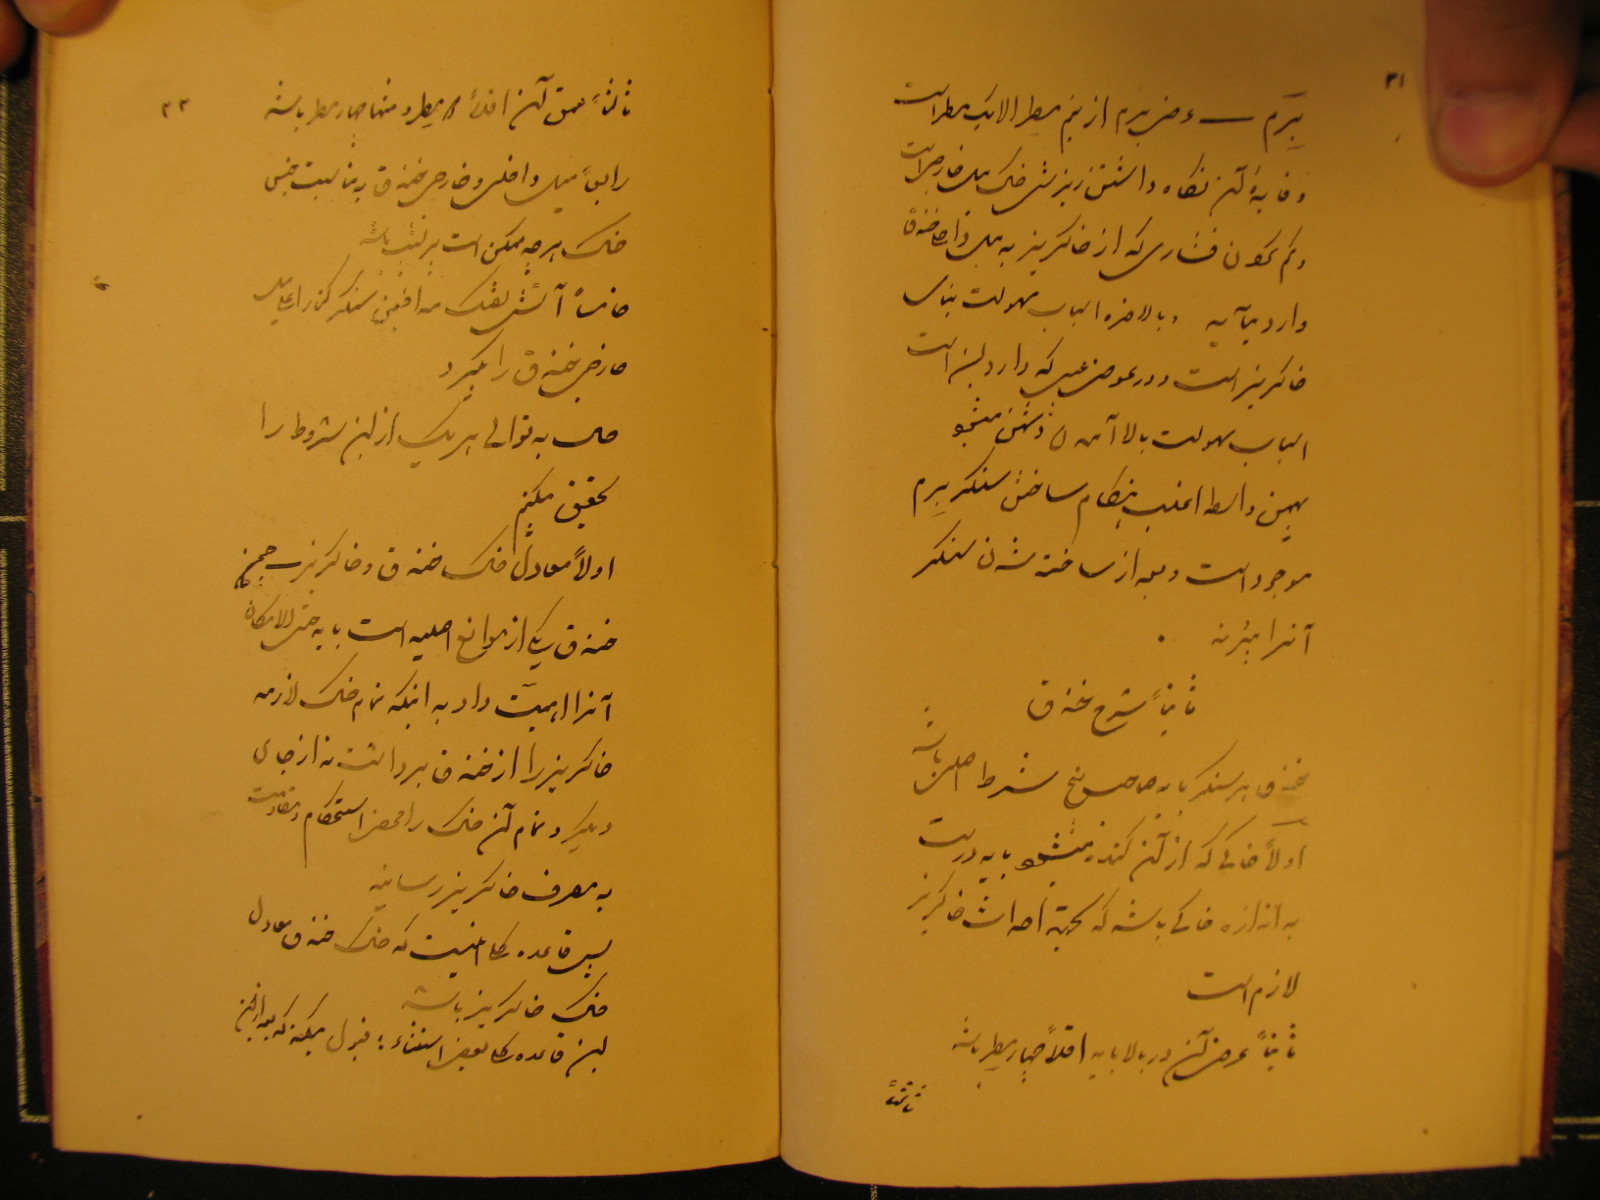 ۳۱
بیرم — عرض بیرم از نیم مطر الا یک مطر است
و فایدهٔ آن نگاه داشتن ریزش خاک میل خارج است
و کم نمودن فشاری که از خاکریز به میل داخل خندق
وارد میآید و بالاخره اسباب سهولت بنای
خاکریز است و در عوض عیبی که دارد این است
اسباب سهولت بالا آمدن دشمن میشود
بهمین واسطه اغلب هنگام ساختن سنگر بیرم
موجود است و بعد از ساخته شدن سنگر
آنرا میبرند
ثانیاً شرح خندق
خندق هر سنگر باید صاحب پنج شرط اصلی باشد
اولاً خاکی که از آن کنده میشود باید درست
به اندازه خاکی باشد که بجهة احداث خاکریز
لازم است
ثانیاً عرض آن در بالا باید اقلاً چهار مطر باشد
ثالثاً
۳۲
ثالثاً عمق آن اقلاً مطر و منتها چهار مطر باشد
رابعاً میل داخلی و خارجی خندق به مناسبت جنس
خاک هر چه ممکن است پر نشیب باشد
خامساً آتش تفنگ مدافعین سنگر کنار اعلی میل
خارجی خندق را بگیرد
حال به توالی هر یک از این شروط را
تحقیق میکنیم
اولاً معادل خاک خندق و خاکریز — چون
خندق یکی از موانع اصلیه است باید حتی الامکان
آنرا اهمیت داد به اینکه تمام خاک لازمه
خاکریز را از خندق برداشت نه از جای
دیگر و تمام آن خاک را محض استحکام و مقاومت
به مصرف خاکریز رسانید
پس قاعده کلی اینست که خاک خندق معادل
خاک خاکریز باشد
این قاعده کلی بعضی استثناء قبول میکند که بعد از این